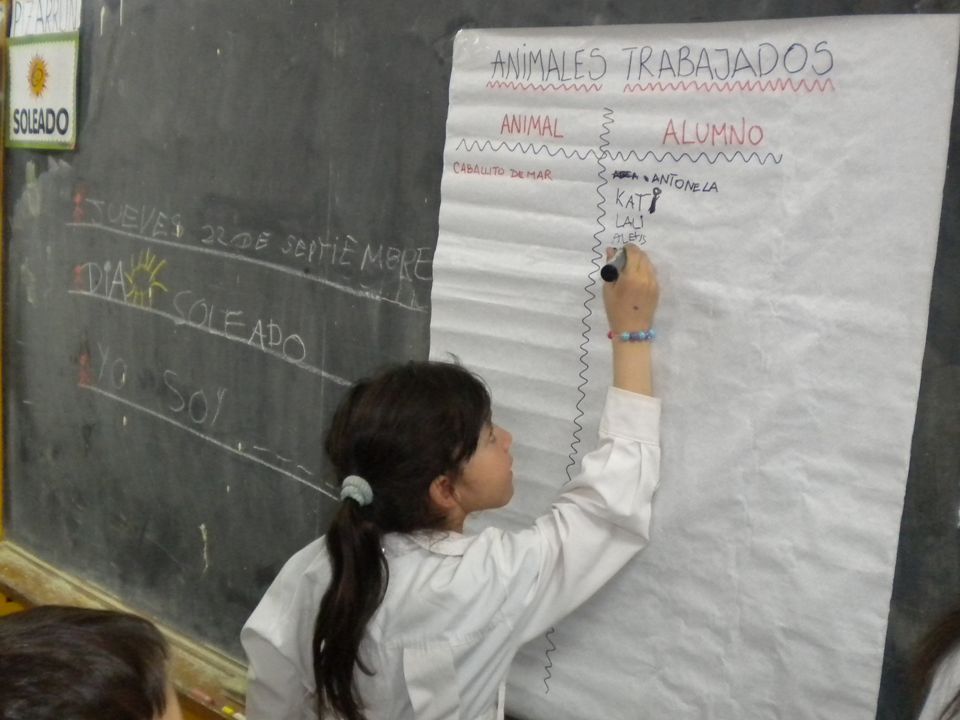 PIZARRÓN
SOLEADO
JUEVES 22 DE SEPTIEMBRE
DIA SOLEADO
YO SOY
ANIMALES TRABAJADOS
ANIMAL ALUMNO
CABALLITO DE MAR
ANTONELA
KATI
LALI
ALEXIS